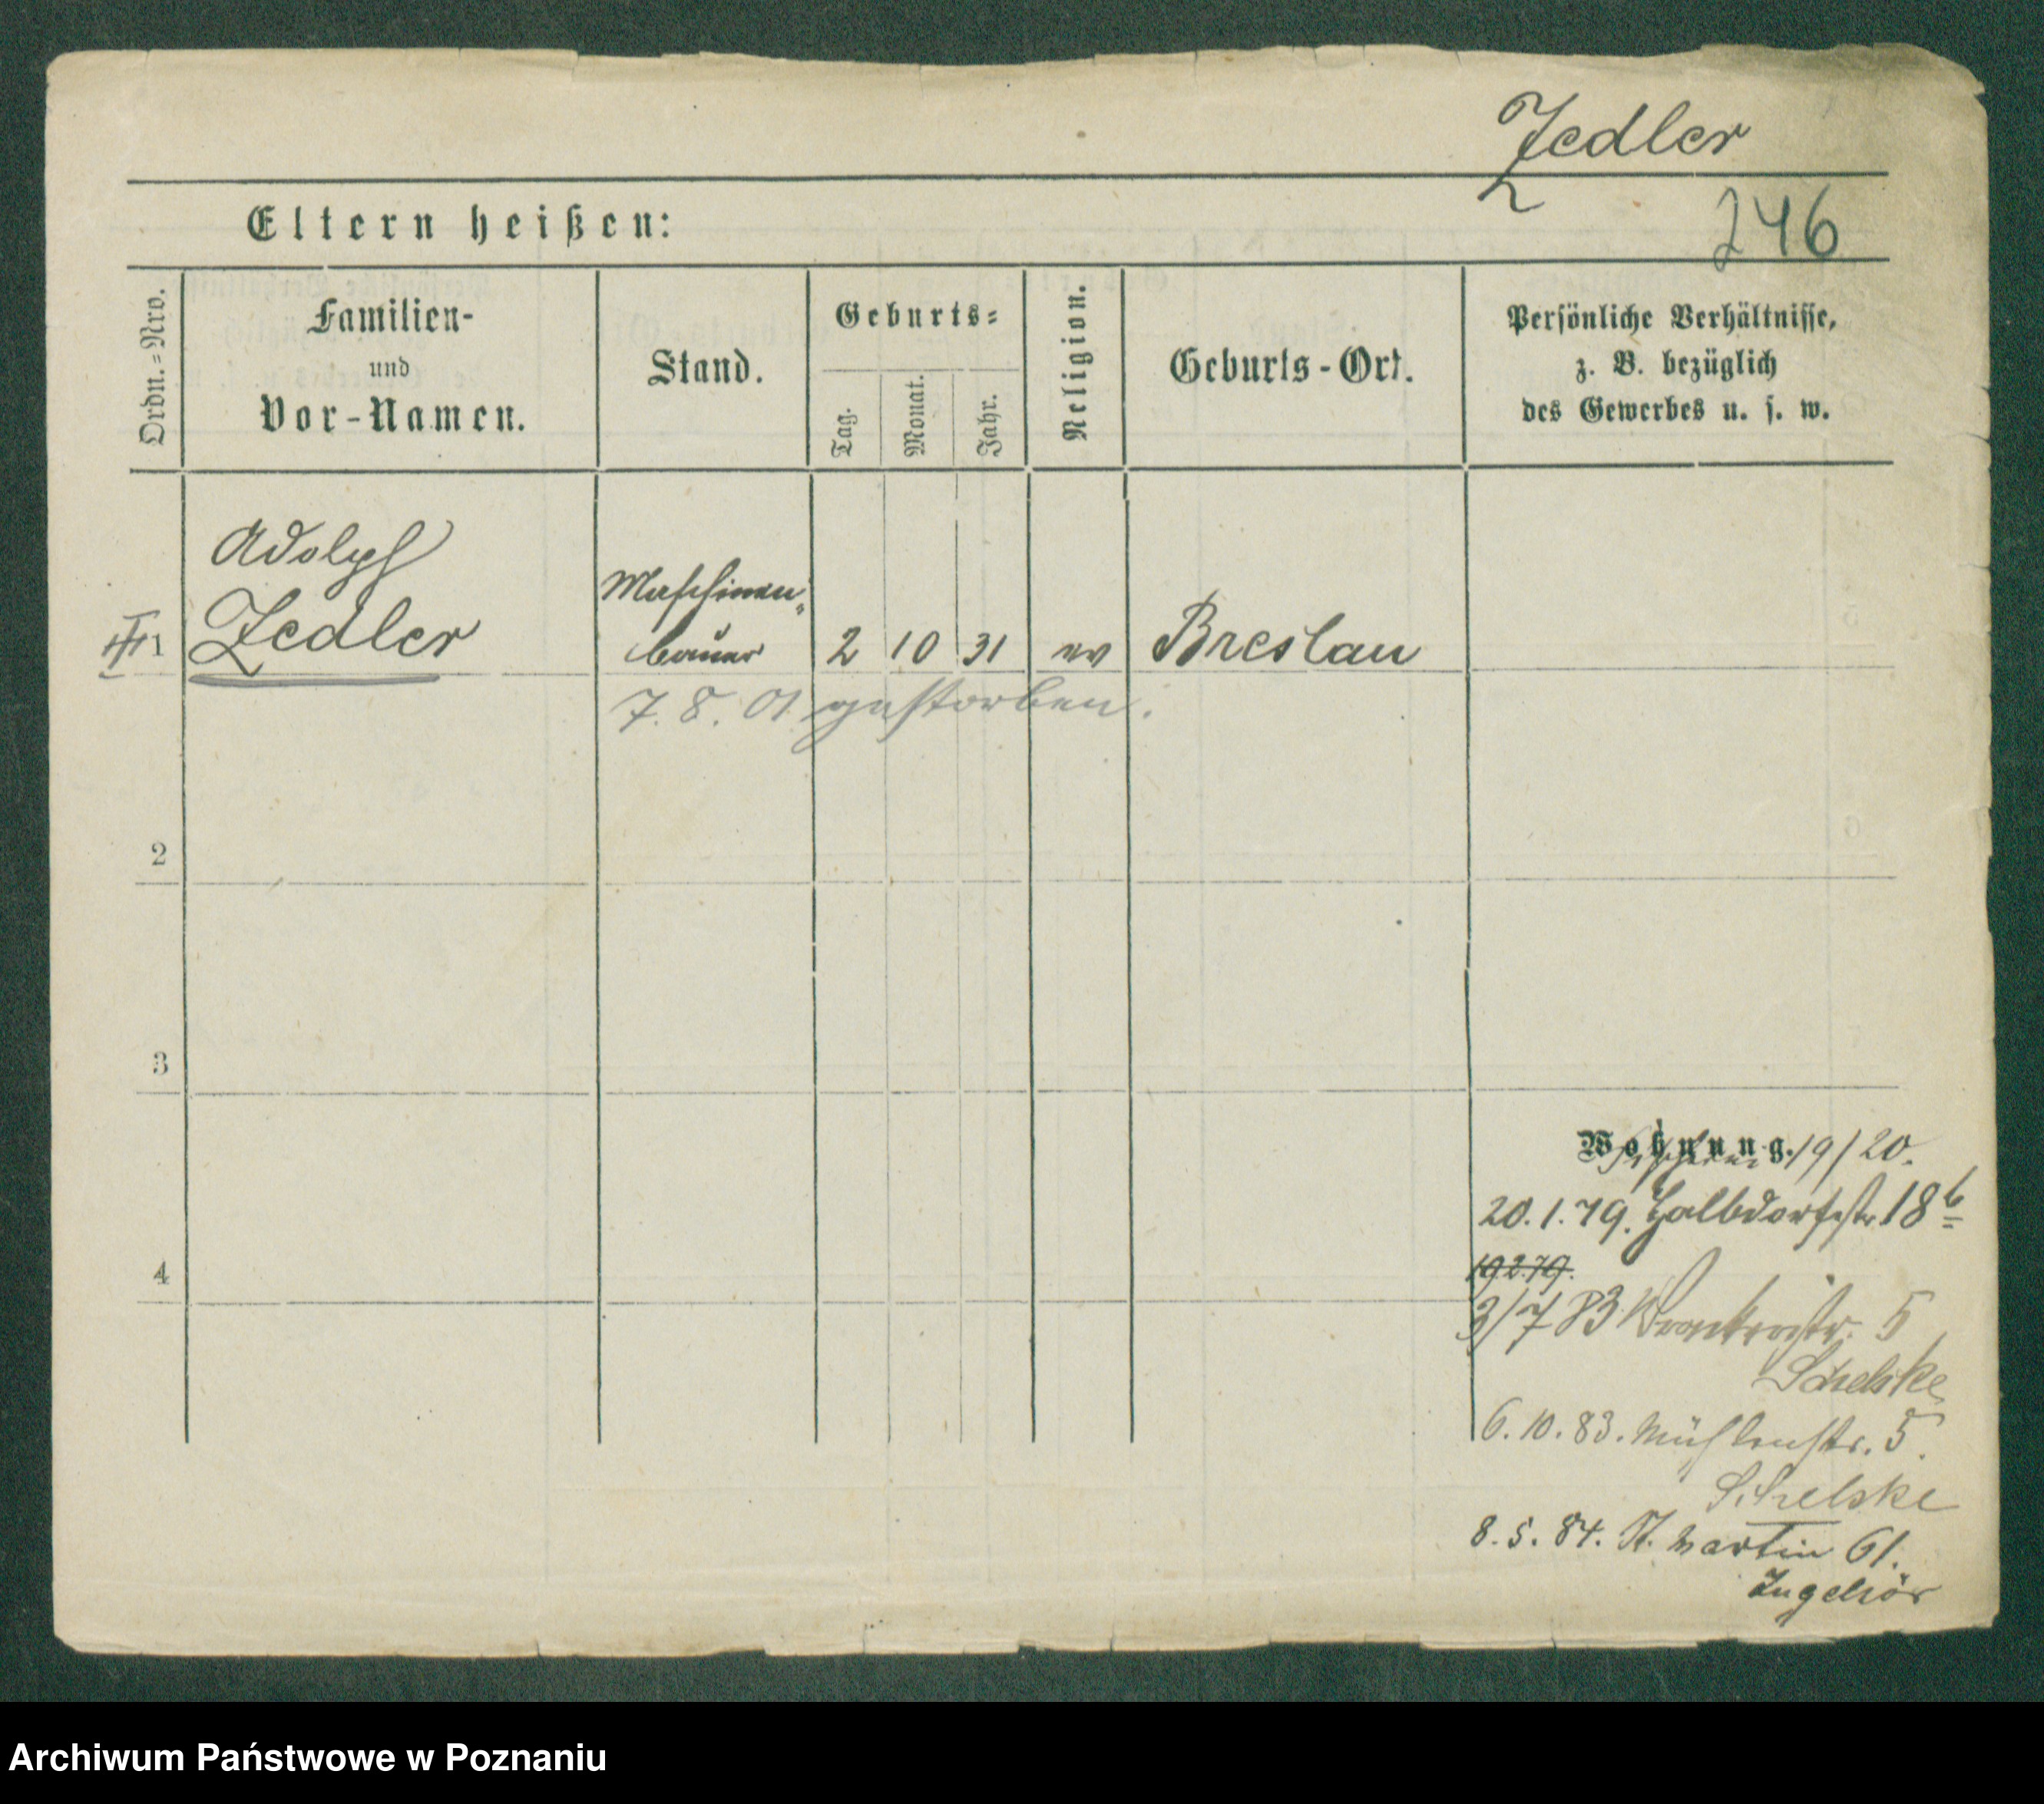 Zedler
246
Eltern heißen:
Ordn.=Nro.
Familien-
und
Vor-Namen.
Stand.
Geburts=
Tag.
Monat.
Jahr.
Religion.
Geburts-Ort.
Persönliche Verhältnisse,
z. B. bezüglich
des Gewerbes u. s. w.
1
Adolph
Zedler
Maschinen„
bauer
2
10
31
ev
Breslau
7. 8. 01. gestorben.
2
3
4
Wohnung.
Fischerei 19/20.
20.1.79. Halbdorfstr. 18b
19.2.79.
3/7 83 Wronkerstr. 5
Schelske
6.10.83. Mühlenstr. 5.
Schelske
8.5.84. St. Martin 61.
Zugehör
Archiwum Państwowe w Poznaniu